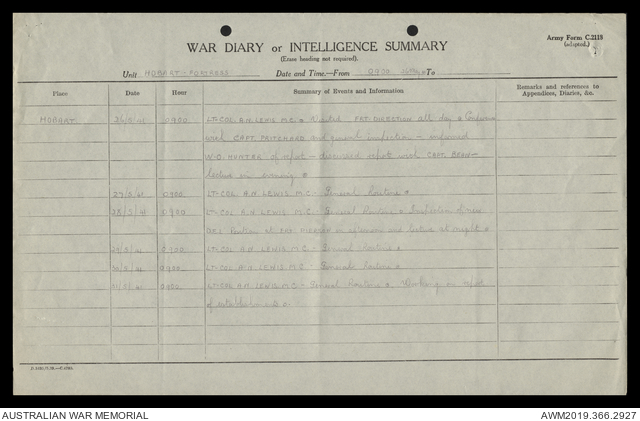 Army Form C.2118
(adapted.)
WAR DIARY or INTELLIGENCE SUMMARY
(Erase heading not required).
Unit HOBART FORTRESS Date and Time—From 0900 To
Place Date Hour Summary of Events and Information Remarks and references to
Appendices, Diaries, &c.
HOBART 26/5/41 0900 LT-COL A.H. LEWIS M.C. Visited FRT. DIRECTION all day & Conference
with CAPT. PRITCHARD and general inspection – informed
W.O. HUNTER of report – discussed report with CAPT. BEAN –
lecture in evening.
27/5/41 0900 LT-COL A.H. LEWIS M.C. – General Routine
28/5/41 0900 LT-COL A.H. LEWIS M.C. General Routine & Inspection
Position at in afternoon and lecture at night
29/5/41 0900 LT-COL A.H. LEWIS M.C. – General Routine
30/5/41 0900 LT-COL A.H. LEWIS M.C. – General Routine
31/5/41 0900 LT-COL A.H. LEWIS M.C. – General Routine & Working on report
of
AUSTRALIAN WAR MEMORIAL
AWM2019.366.2927